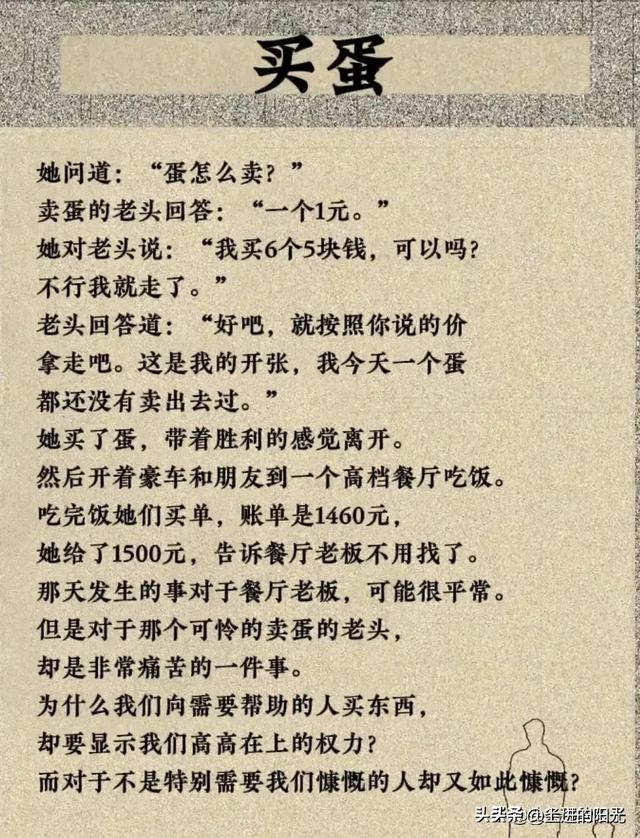 买蛋
她问道：“蛋怎么卖？”
卖蛋的老头回答：“一个1元。”
她对老头说：“我买6个5块钱，可以吗？
不行我就走了。”
老头回答道：“好吧，就按照你说的价
拿走吧。这是我的开张，我今天一个蛋
都还没有卖出去过。”
她买了蛋，带着胜利的感觉离开。
然后开着豪车和朋友到一个高档餐厅吃饭。
吃完饭她们买单，账单是1460元，
她给了1500元，告诉餐厅老板不用找了。
那天发生的事对于餐厅老板，可能很平常。
但是对于那个可怜的卖蛋的老头，
却是非常痛苦的一件事。
为什么我们向需要帮助的人买东西，
却要显示我们高高在上的权力？
而对于不是特别需要我们慷慨的人却又如此慷慨？
头条 @的阳光